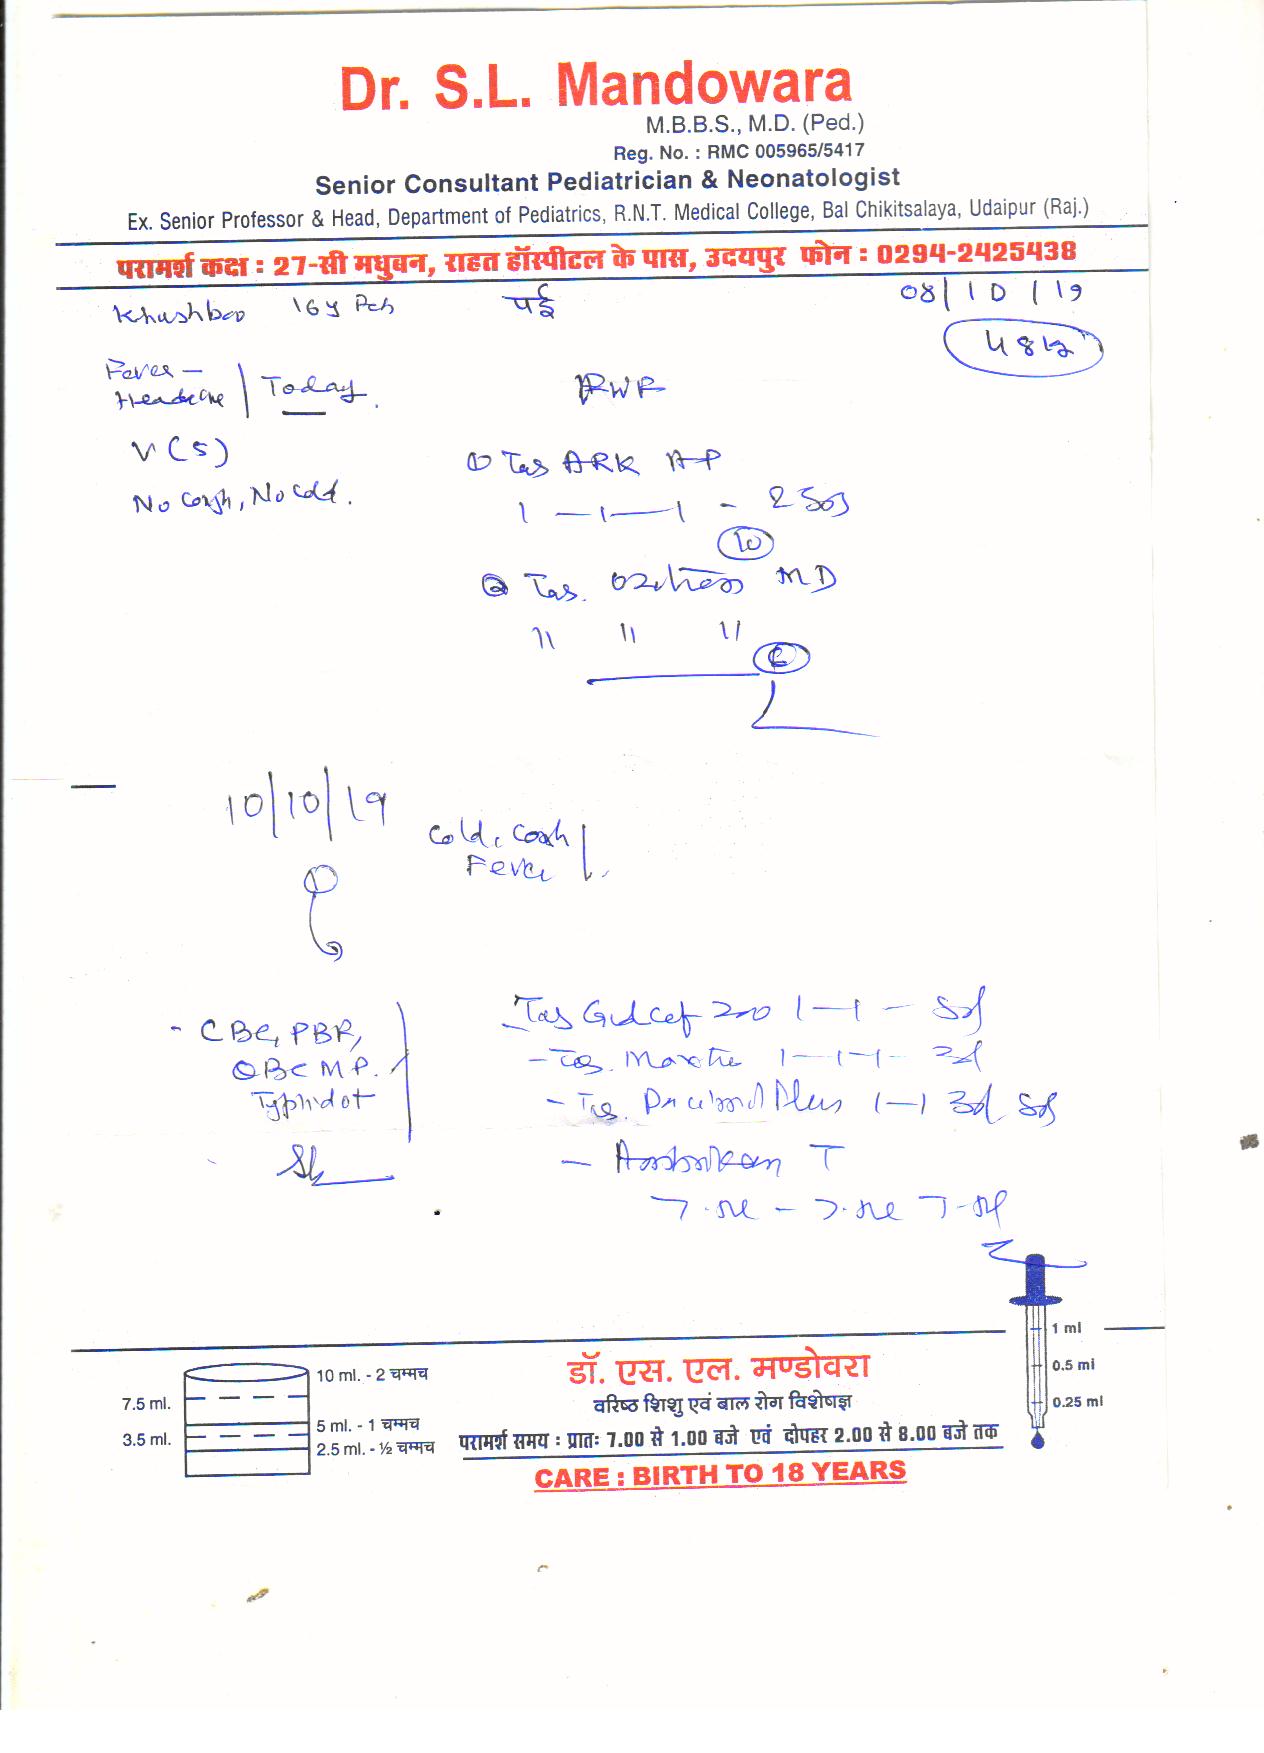 Dr. S.L. Mandowara
M.B.B.S., M.D. (Ped.)
Reg. No. : RMC 005965/5417
Senior Consultant Pediatrician & Neonatologist
Ex. Senior Professor & Head, Department of Pediatrics, R.N.T. Medical College, Bal Chikitsalaya, Udaipur (Raj.)
परामर्श कक्ष : 27-सी मधुबन, राहत हॉस्पीटल के पास, उदयपुर फोन : 0294-2425438
Khushboo 16y
08/10/19
48
Fever -
Headache Today.
V (5)
No Cough, No Cold.
① Tab ARK AP
1 - 1 - 1 -
② Tab. MD
" " "
10/10/19
Cold, Cough
Fever
- CBC, PBR,
QBC MP.
Typhidot
Tab Gudcef 200 1 - 1 - 5d
- Tab. 1 - 1 - 1 -
- Tab. Plus 1 - 1 3d
- T
10 ml. - 2 चम्मच
7.5 ml.
5 ml. - 1 चम्मच
3.5 ml.
2.5 ml. - ½ चम्मच
डॉ. एस. एल. मण्डोवरा
वरिष्ठ शिशु एवं बाल रोग विशेषज्ञ
परामर्श समय : प्रातः 7.00 से 1.00 बजे एवं दोपहर 2.00 से 8.00 बजे तक
CARE : BIRTH TO 18 YEARS
1 ml
0.5 ml
0.25 ml